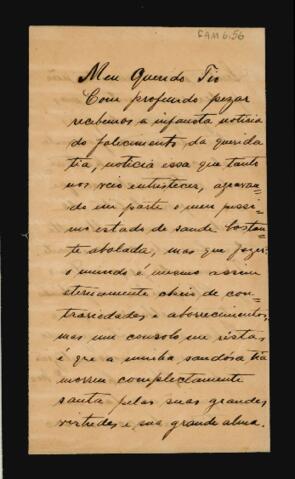 CAM 6.56
Meu Querido Tio
Com profundo pezar
recebemos a infausta noticia
do falecimento da querida
tia, noticia essa que tanto
nos veio entristecer, agravan-
do em parte o meu pessi-
mo estado de saude bastan-
te abalada, mas que fazer
o mundo é mesmo assim
eternamente cheio de con-
trariedades e aborrecimentos,
mas um consolo me résta
é que a minha saudósa tia
morreu completamente
santa pelas suas grandes
virtudes e sua grande alma.